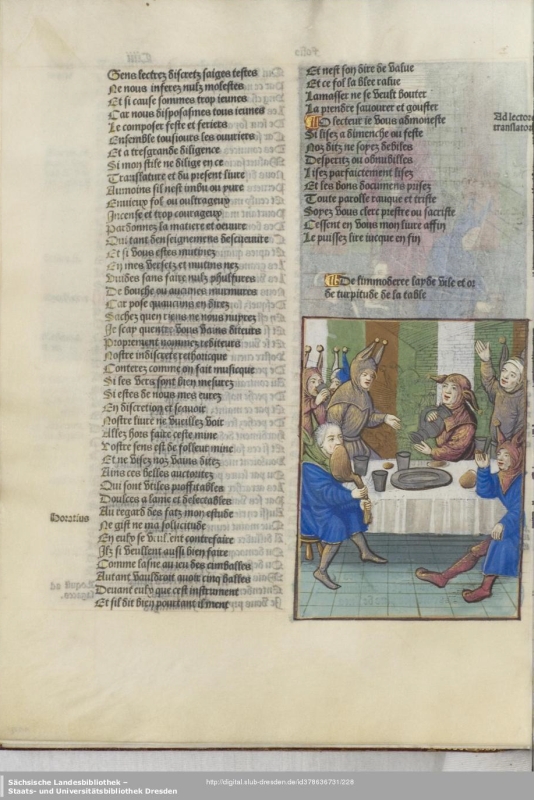 Gens lectrez discretz saiges testes
Ne nous inferez nulz molestes
Et si cause sommes trop ieunes
Car nous disposasmes tous ieunes
Le composer feste et feriers
Ensemble tousiours les ouuriers
Et a tresgrande diligence
Si mon stile ne dilige en ce
Translature et du present liure
Aumoins sil nest imbu ou pure
Ennieux fol ou oultrageux
Incense et trop courageux
Pardonnez la matiere et oeuure
Qui tant denseignemens
Et si vous estes mutinez
En mes versetz et mutins nez
Vuides sans faire nulz
De bouche ou aucunes murmures
Car pose quaucuns en direz
Sachez que riens ne nous nuyrez
Je scay quentre vous vains diteurs
Proprement nommez rediteurs
Nostre indiscrete rethorique
Conterez comme on fait musique
Si les vers sont bien mesurez
Si estes de nous mes curez
En discretion et scauoir
Nostre liure ne vueillez voir
Allez hors faire ceste mine
Vostre sens est de folleur mine
Et ne visez noz vains ditez
Ains ces belles auctoritez
Qui sont vtiles proffitables
Doulces a lame et delectables
Au regard des fatz mon estude
Ne gist ne ma sollicitude
Horatius
En eulx se veullent contrefaire
Ilz si veullent aussi bien faire
Comme lasne au ieu des cimballes
Autant vauldroit quoir cinq balles
Deuant eulx que cest instrument
Et sil dit bien pourtant il ment
Et nest son dire de value
Et ce fol la blee
Lamasser ne se veult bouter
La prendre sauourer et gouster
O lecteur ie vous admoneste
Ad lectore
translator
Si lisez a dimenche ou feste
Noz ditz ne soyez debiles
Desperitz ou obnubilles
Lisez parfaictement lisez
Et les bons documens prisez
Toute parolle rauque et triste
Soyez vous clerc prestre ou sacriste
Cessent en vous mon liure affin
Le puissez lire iucque en fin
De limmoderee laide vile et or
de turpitude de la table
Sächsische Landesbibliothek –
Staats- und Universitätsbibliothek Dresden
http://digital.slub-dresden.de/id378636731/228